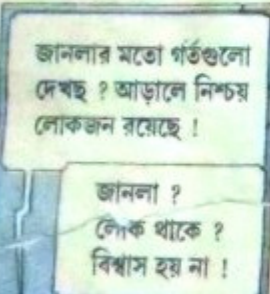 জানলার মতো গর্তগুলো
দেখছ ? আড়ালে নিশ্চয়
লোকজন রয়েছে !
জানলা ?
লোক থাকে ?
বিশ্বাস হয় না !